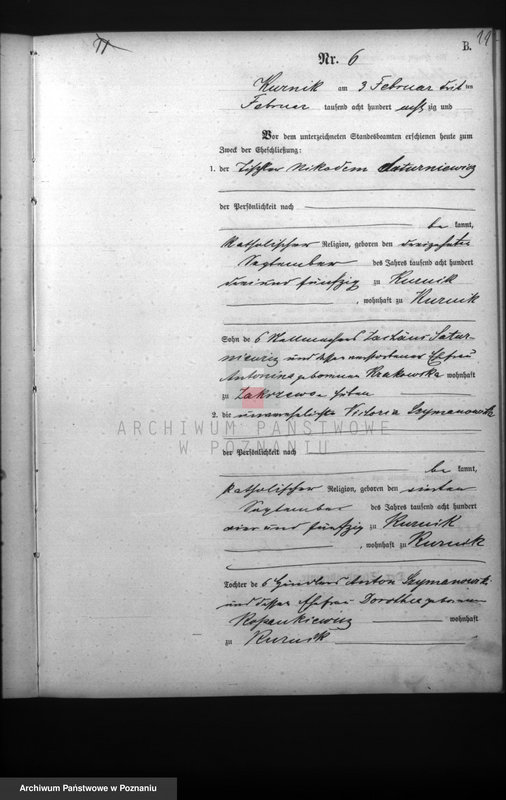 19
B.
Nr. 6
Kurnik am 3 Februar
Februar tausend acht hundert acht zig und
Vor dem unterzeichneten Standesbeamten erschienen heute zum
Zweck der Eheschließung:
1. der Tischler Nikodem Saturniewicz
der Persönlichkeit nach
be kannt,
katholischer Religion, geboren den dreizehnten
September des Jahres tausend acht hundert
drei und fünfzig zu Kurnik
, wohnhaft zu Kurnik
Sohn des Stellmachers Satur-
niewicz und dessen verstorbenen Ehefrau
Antonina geborenen Krakowska wohnhaft
zu Zakrzewo
2. die unverehelichte Victoria Szymanowska
ARCHIWUM PAŃSTWOWE
W POZNANIU
der Persönlichkeit nach
be kannt,
katholischer Religion, geboren den vierten
September des Jahres tausend acht hundert
vier und fünfzig zu Kurnik
, wohnhaft zu Kurnik
Tochter des Anton Szymanowski
und dessen Ehefrau Dorothea geborenen
wohnhaft
zu Kurnik
Archiwum Państwowe w Poznaniu